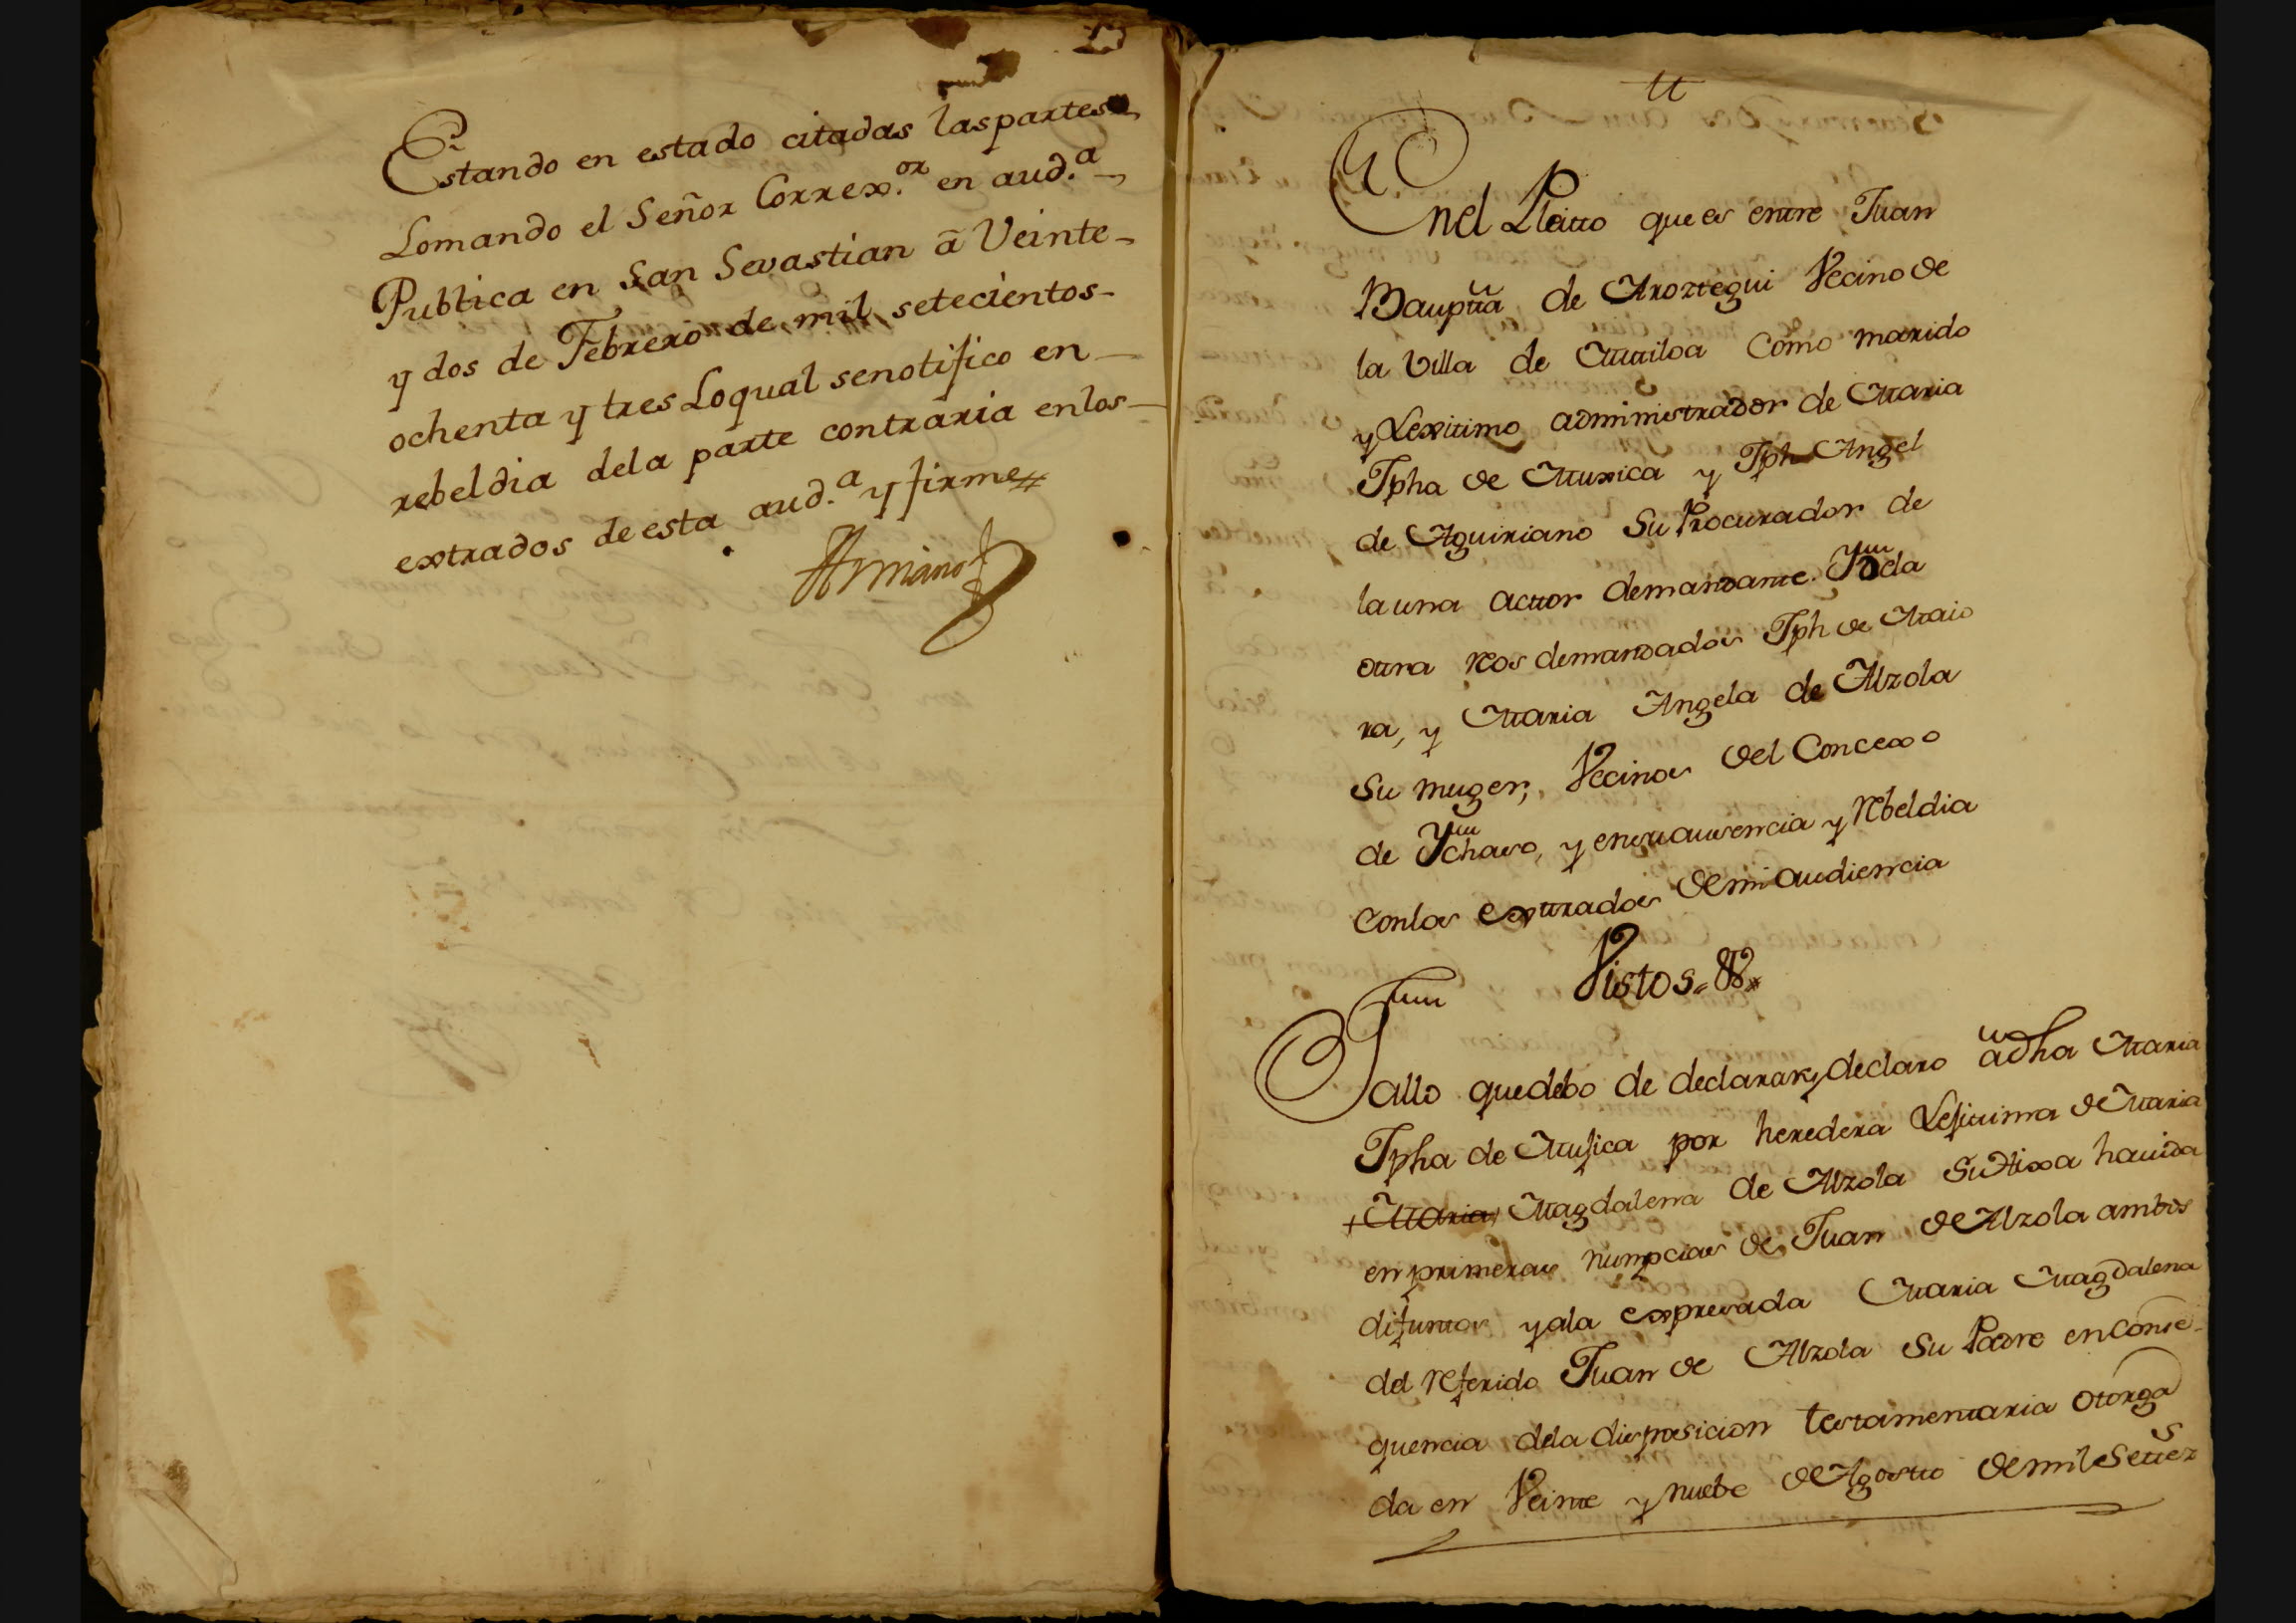 Estando en estado citadas las partes
Lo mando el Señor Correx.or en aud.a
Publica en San Sevastian â Veinte
y dos de Febrero de mil setecientos
ochenta y tres Lo qual se notifico en
rebeldia de la parte contraria en los
extrados de esta aud.a y firme
Armiano
En el Pleitto que es entre Juan
Bauptta de Aroztegui Vecino de
la Villa de Muttiloa como marido
y Lexitimo administrador de Maria
Jpha de Muxica y Jph Angel
de Aguiriano su Procurador de
la una acttor demandante. Y de la
ottra reos demandados Jph de Maio
ra, y Maria Angela de Alzola
su muger, Vecinos del Concexo
de Ychaso, y en su ausencia y rebeldia
con los exttrados de mi audiencia
Vistos. &
Fallo que debo de declarar y declaro â dha Maria
Jpha de Mujica por heredera Lejitima de Maria
Maria Magdalena de Alzola su Hixa havida
en primeras numpcias de Juan de Alzola ambos
difuntos y a la expresada Maria Magdalena
del referido Juan de Alzola su Padre en conse-
quencia de la disposicion testamentaria otorga
da en Veinte y nuebe de Agostto de mil Settez